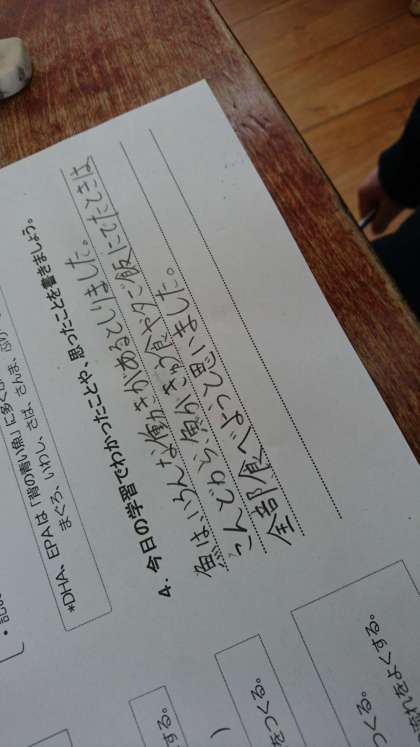 *DHA、EPAは「背の青い魚」に多く
まぐろ、いわし、さば、さんま、ぶり
4. 今日の学習でわかったことや、思ったことを書きましょう。
魚は、いろんな働きがあるとしりました。
こんどから魚がきゅう食や夕ご飯にでたときは
全部食べようと思いました。
をつくる。
つくる。
れをよくする。
する。
)